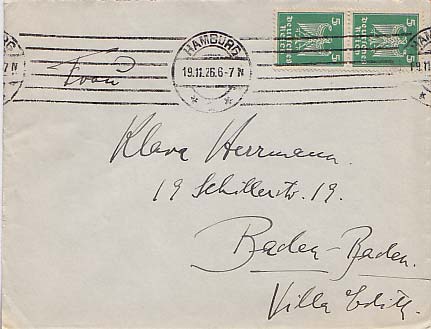 5 Deutsches Reich 5
5 Deutsches Reich 5
HAMBURG
19.11.26.6-7 N
Klara Herrmann.
19 Schillerstr. 19.
Baden-Baden.
Villa Edith.